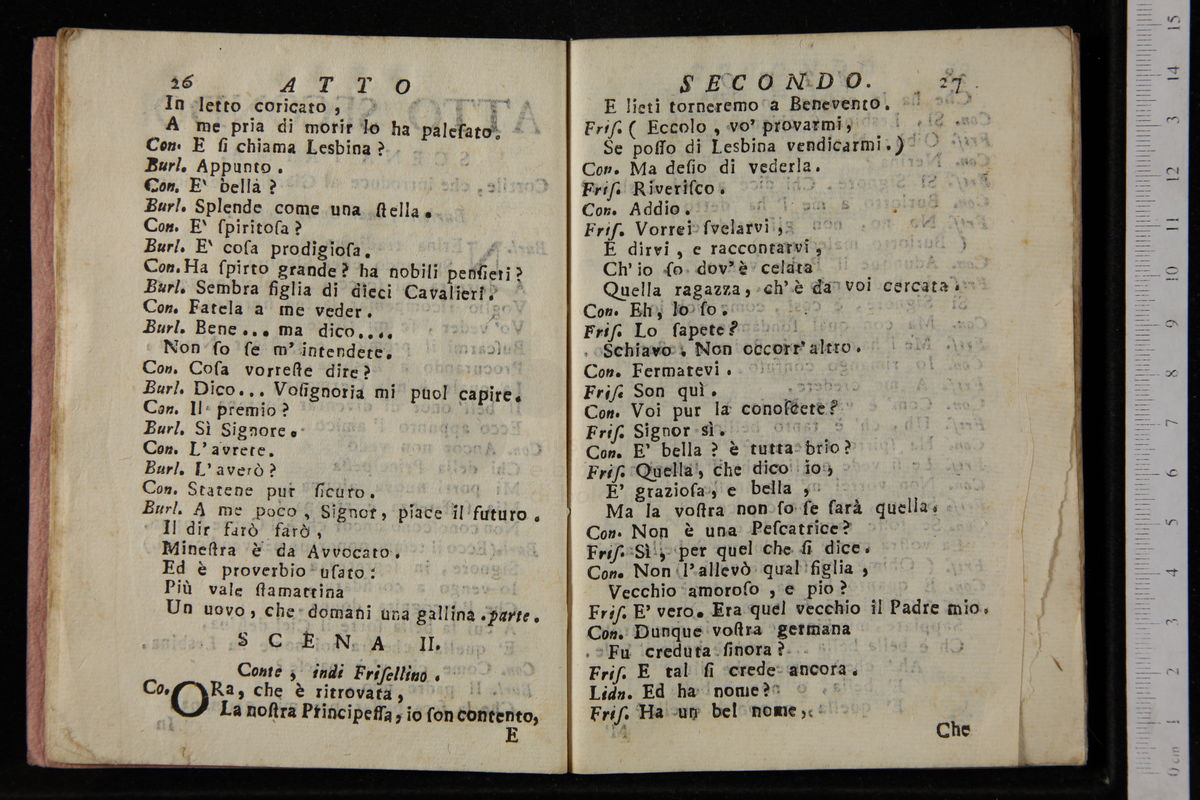 26 ATTO
In letto coricato ,
A me pria di morir lo ha paleſato.
Con. E ſi chiama Lesbina ?
Burl. Appunto .
Con. E' bella ?
Burl. Splende come una ſtella.
Con. E' ſpiritoſa ?
Burl. E' coſa prodigioſa.
Con. Ha ſpirto grande ? ha nobili penſieri ?
Burl. Sembra figlia di dieci Cavalieri.
Con. Fatela a me veder.
Burl. Bene... ma dico....
Non ſo ſe m' intendete.
Con. Coſa vorreſte dire ?
Burl. Dico... Voſignoria mi puol capire.
Con. Il premio ?
Burl. Sì Signore.
Con. L' avrete.
Burl. L' averò ?
Con. Statene pur ſicuro.
Burl. A me poco , Signor, piace il futuro.
Il dir farò farò ,
Mineſtra è da Avvocato.
Ed è proverbio uſato :
Più vale ſtamattina
Un uovo, che domani una gallina. parte.
SCENA II.
Conte , indi Friſellino .
Co. ORa, che è ritrovata,
La noſtra Principeſſa, io ſon contento,
E
SECONDO. 27
E lieti torneremo a Benevento.
Friſ. ( Eccolo , vo' provarmi,
Se poſſo di Lesbina vendicarmi. )
Con. Ma deſio di vederla.
Friſ. Riveriſco.
Con. Addio.
Friſ. Vorrei ſvelarvi,
E dirvi , e raccontarvi,
Ch' io ſo dov' è celata
Quella ragazza, ch' è da voi cercata.
Con. Eh, lo ſo.
Friſ. Lo ſapete ?
Schiavo . Non occorr' altro.
Con. Fermatevi.
Friſ. Son quì.
Con. Voi pur la conoſcete ?
Friſ. Signor sì.
Con. E' bella ? è tutta brio ?
Friſ. Quella, che dico io,
E' grazioſa, e bella ,
Ma la voſtra non ſo ſe ſarà quella.
Con. Non è una Peſcatrice ?
Friſ. Sì , per quel che ſi dice.
Con. Non l' allevò qual figlia ,
Vecchio amoroſo , e pio ?
Friſ. E' vero. Era quel vecchio il Padre mio.
Con. Dunque voſtra germana
Fu creduta ſinora ?
Friſ. E tal ſi crede ancora.
Lidn. Ed ha nome ?
Friſ. Ha un bel nome,
Che
0 cm 1 2 3 4 5 6 7 8 9 10 11 12 13 14 15